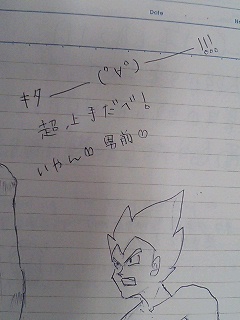 Date
キター(゜∀゜)ー!!!
超上手だべ!
いやん♡男前♡